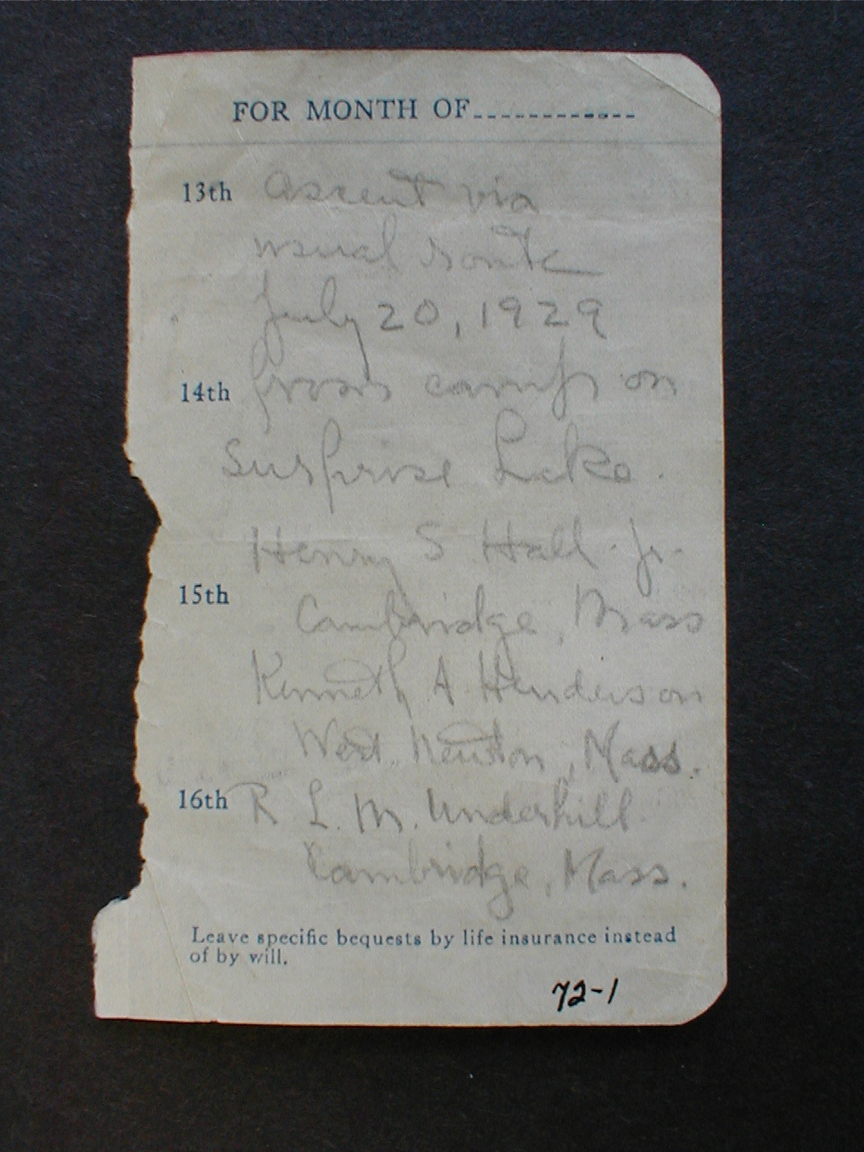 FOR MONTH OF ............
13th Ascent via
usual route
July 20, 1929
14th from camp on
Surprise Lake.
Henry S Hall Jr.
15th
Cambridge, Mass
Kenneth A Henderson
West Newton, Mass.
16th R L. M. Underhill
Cambridge, Mass.
Leave specific bequests by life insurance instead
of by will.
72-1